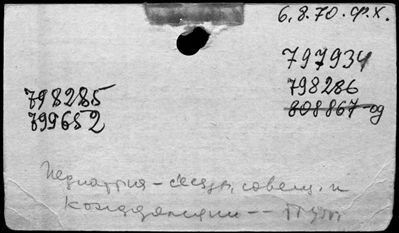 6.8.70.Ф.Х.
797934
798286
808867-од
798285
799652
Педиатрия - съезды, совещ. и
конференции --